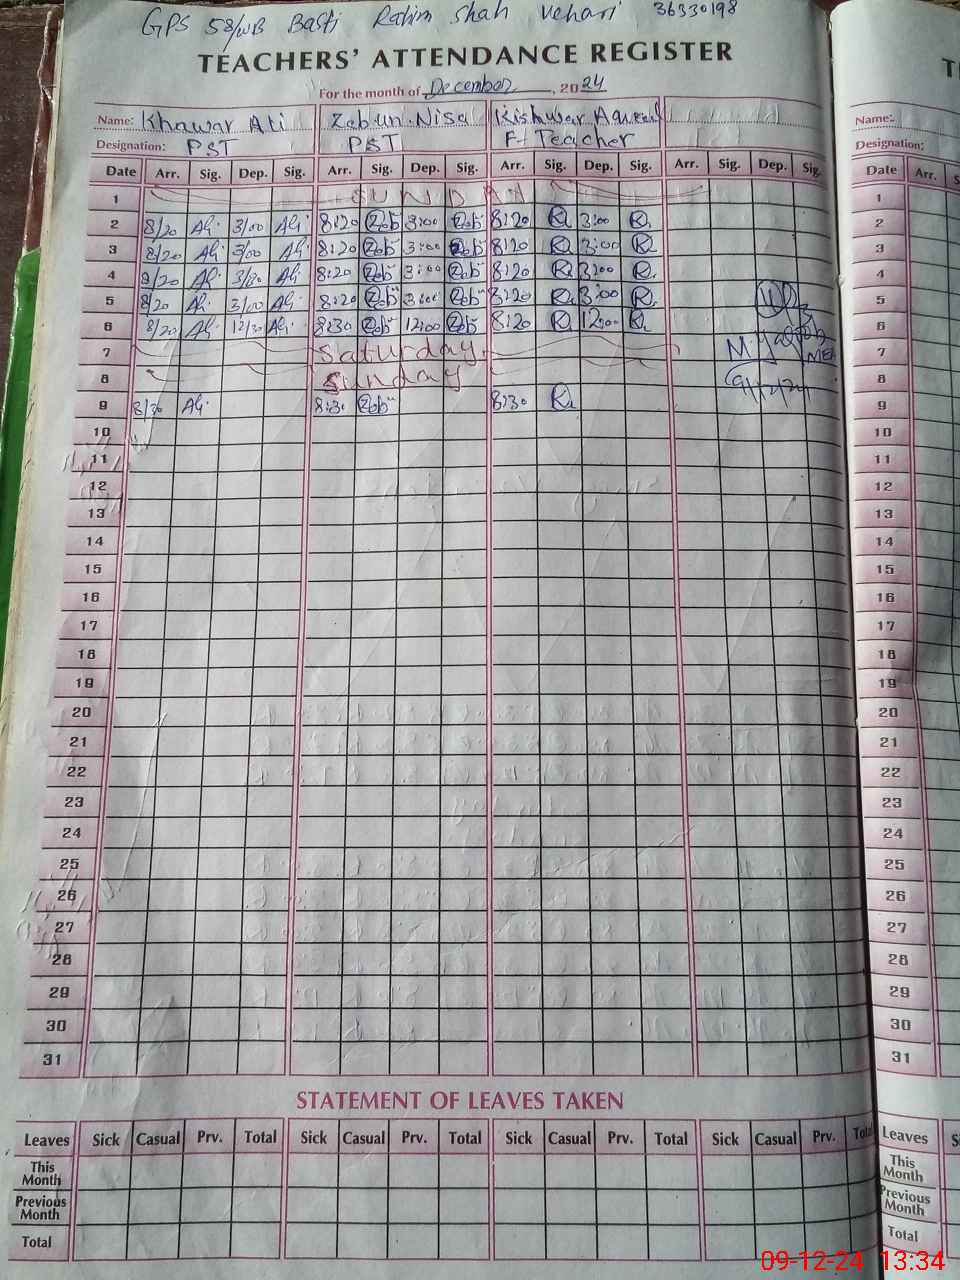 GPS 58/WB Basti Rahim Shah Vehari 36330198
TEACHERS' ATTENDANCE REGISTER
For the month of December, 2024
Name: Khawar Ali Zeb-un-Nisa Kishwar
Designation: PST PST F- Teacher
Date Arr. Sig. Dep. Sig. Arr. Sig. Dep. Sig. Arr. Sig. Dep. Sig. Arr. Sig. Dep. Sig.
1 SUNDAY
2 8/20 Ali 3/00 Ali 8:20 Zeb 3:00 Zeb 8:20 K 3:00 K
3 8/20 Ali 3/00 Ali 8:20 Zeb 3:00 Zeb 8:20 K 3:00 K
4 8/20 Ali 3/00 Ali 8:20 Zeb 3:00 Zeb 8:20 K 3:00 K
5 8/20 Ali 3/00 Ali 8:20 Zeb 3:00 Zeb 8:20 K 3:00 K
6 8/20 Ali 12/30 Ali 8:30 Zeb 12:00 Zeb 8:20 K 12:00 K
7 Saturday
8 Sunday
9/12/24
9 8/30 Ali 8:30 Zeb 8:30 K
10
11
12
13
14
15
16
17
18
19
20
21
22
23
24
25
26
27
28
29
30
31
STATEMENT OF LEAVES TAKEN
Leaves Sick Casual Prv. Total Sick Casual Prv. Total Sick Casual Prv. Total Sick Casual Prv. Total
This Month
Previous Month
Total
Name:
Designation:
Date Arr.
1
2
3
4
5
6
7
8
9
10
11
12
13
14
15
16
17
18
19
20
21
22
23
24
25
26
27
28
29
30
31
Leaves
This Month
Previous Month
Total
09-12-24 13:34